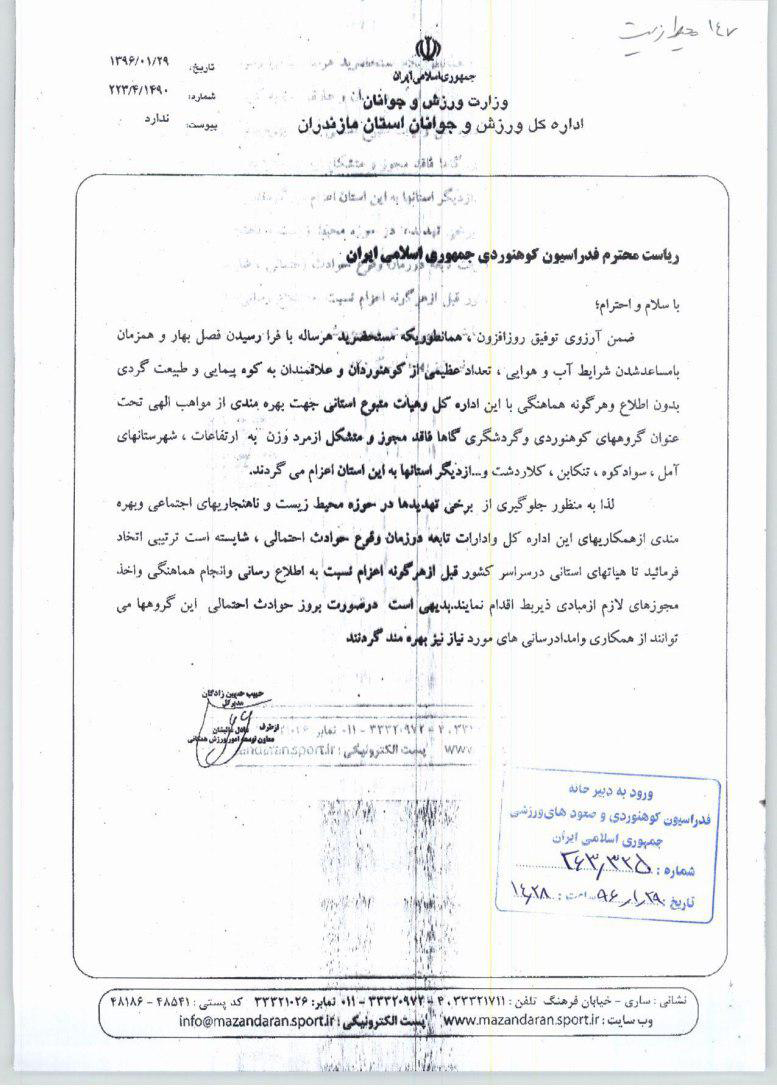 ۱۴۷ محیط زیست
جمهوری اسلامی ایران
وزارت ورزش و جوانان
اداره کل ورزش و جوانان استان مازندران
تاریخ: ۱۳۹۶/۰۱/۲۹
شماره: ۲۲۳/۴/۱۴۹۰
پیوست: ندارد
ریاست محترم فدراسیون کوهنوردی جمهوری اسلامی ایران
با سلام و احترام؛
ضمن آرزوی توفیق روزافزون ، همانطوریکه مستحضرید هرساله با فرا رسیدن فصل بهار و همزمان
بامساعدشدن شرایط آب و هوایی ، تعداد عظیمی از کوهنوردان و علاقمندان به کوه پیمایی و طبیعت گردی
بدون اطلاع وهرگونه هماهنگی با این اداره کل وهیات متبوع استانی جهت بهره مندی از مواهب الهی تحت
عنوان گروههای کوهنوردی وگردشگری گاها فاقد مجوز و متشکل ازمرد وزن به ارتفاعات ، شهرستانهای
آمل ، سوادکوه ، تنکابن ، کلاردشت و...ازدیگر استانها به این استان اعزام می گردند.
لذا به منظور جلوگیری از برخی تهدیدها در حوزه محیط زیست و ناهنجاریهای اجتماعی وبهره
مندی ازهمکاریهای این اداره کل وادارات تابعه درزمان وقوع حوادث احتمالی ، شایسته است ترتیبی اتخاد
فرمائید تا هیاتهای استانی درسراسر کشور قبل ازهرگونه اعزام نسبت به اطلاع رسانی وانجام هماهنگی واخذ
مجوزهای لازم ازمبادی ذیربط اقدام نمایند.بدیهی است درصورت بروز حوادث احتمالی این گروهها می
توانند از همکاری وامدادرسانی های مورد نیاز نیز بهره مند گردند
حبیب حسین زادگان
مدیرکل
ازطرف
معاون توسعه امور ورزش همگانی
ورود به دبیر خانه
فدراسیون کوهنوردی و صعود های ورزشی
جمهوری اسلامی ایران
شماره : ۲۶۳,۳۲۵
تاریخ : ۹۶/۱/۲۹ ساعت : ۱۴,۲۸
نشانی : ساری - خیابان فرهنگ تلفن : ۳۳۳۲۱۷۱۱ ۰۴ - ۳۳۳۲۰۹۷۲ - ۰۱۱ نمابر: ۳۳۳۲۱۰۲۶ کد پستی : ۴۸۵۴۱ - ۴۸۱۸۶
وب سایت : www.mazandaran.sport.ir پست الکترونیکی : info@mazandaran.sport.ir